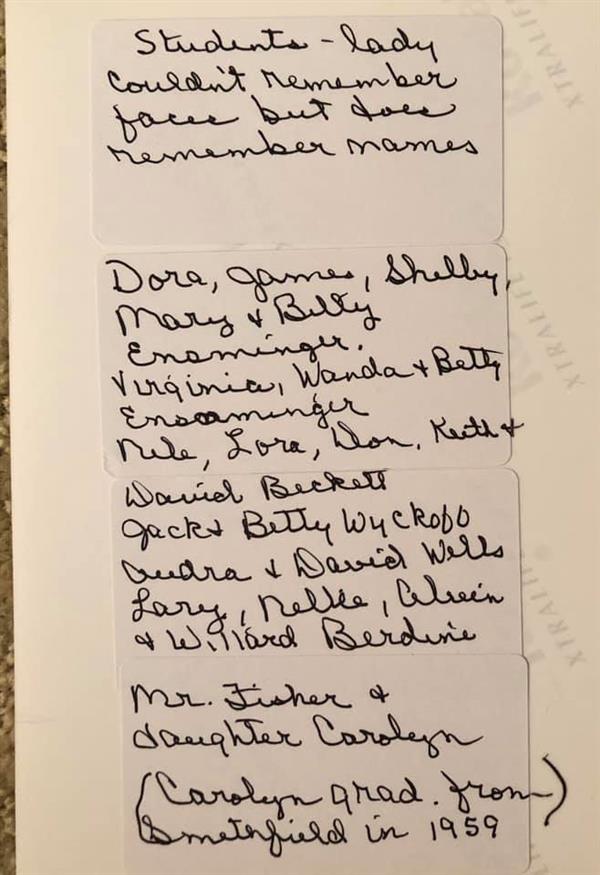 Students - lady
Couldn't remember
faces but does
remember names
Dora, James, Shelby,
Mary & Billy
Ensminger.
Virginia, Wanda & Betty
Ensminger
Nile, Lora, Don, Keith &
David Beckett
Jack & Betty Wyckoff
Audra & David Wells
Lary, Nellie, Alvein
& Willard Berdine
Mr. Fisher &
daughter Carolyn
(Carolyn grad. from)
Smithfield in 1959
XTRALIFE
XTRALIFE
XTRALIFE